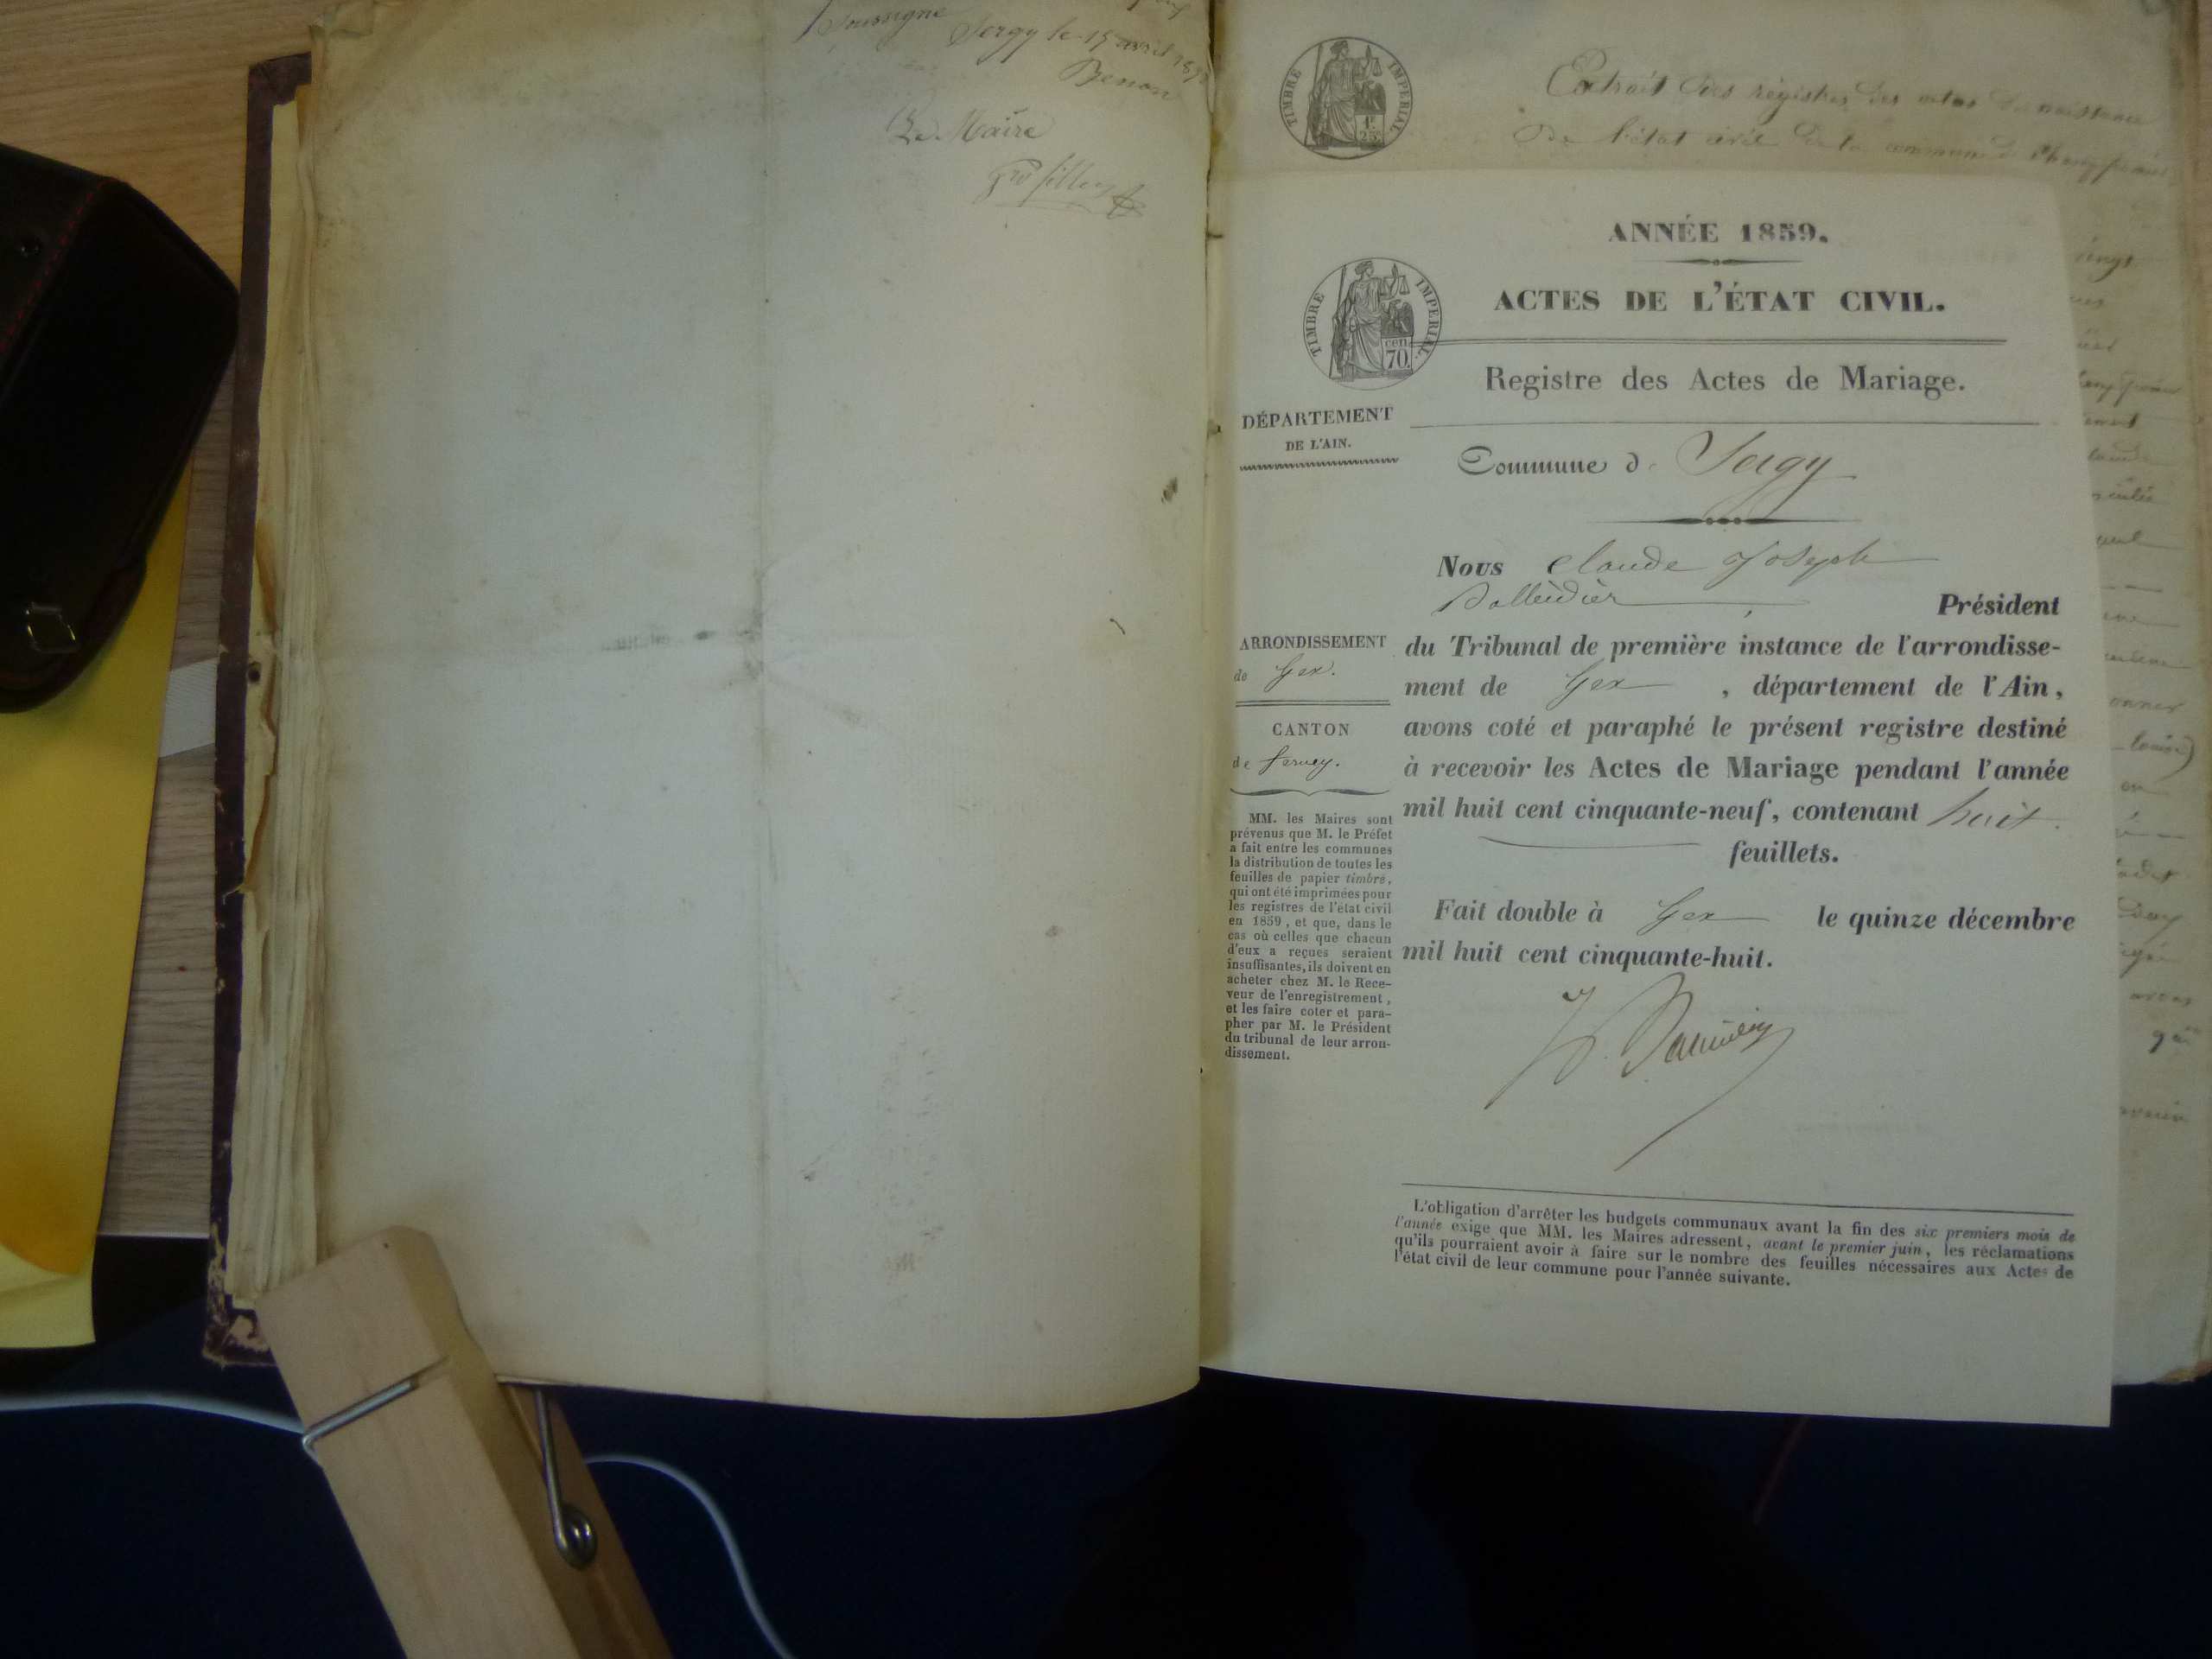 Soussigné
Sergy le 15 avril 189
Benon
Le Maire
Grosfilley
TIMBRE IMPERIAL
1F. 25
Extrait des registres des actes de naissance
De l'état civil de la commune de
ANNÉE 1859.
ACTES DE L'ÉTAT CIVIL.
TIMBRE IMPERIAL
cen. 70
Registre des Actes de Mariage.
DÉPARTEMENT
DE L'AIN.
Commune d Sergy
Nous Claude Joseph
Président
ARRONDISSEMENT
de Gex.
CANTON
de Ferney.
MM. les Maires sont
prévenus que M. le Préfet
a fait entre les communes
la distribution de toutes les
feuilles de papier timbré,
qui ont été imprimées pour
les registres de l'état civil
en 1859, et que, dans le
cas où celles que chacun
d'eux a reçues seraient
insuffisantes, ils doivent en
acheter chez M. le Rece-
veur de l'enregistrement,
et les faire coter et para-
pher par M. le Président
du tribunal de leur arron-
dissement.
du Tribunal de première instance de l'arrondisse-
ment de Gex, département de l'Ain,
avons coté et paraphé le présent registre destiné
à recevoir les Actes de Mariage pendant l'année
mil huit cent cinquante-neuf, contenant huit
feuillets.
Fait double à Gex le quinze décembre
mil huit cent cinquante-huit.
L'obligation d'arrêter les budgets communaux avant la fin des six premiers mois de
l'année exige que MM. les Maires adressent, avant le premier juin, les réclamations
qu'ils pourraient avoir à faire sur le nombre des feuilles nécessaires aux Actes de
l'état civil de leur commune pour l'année suivante.